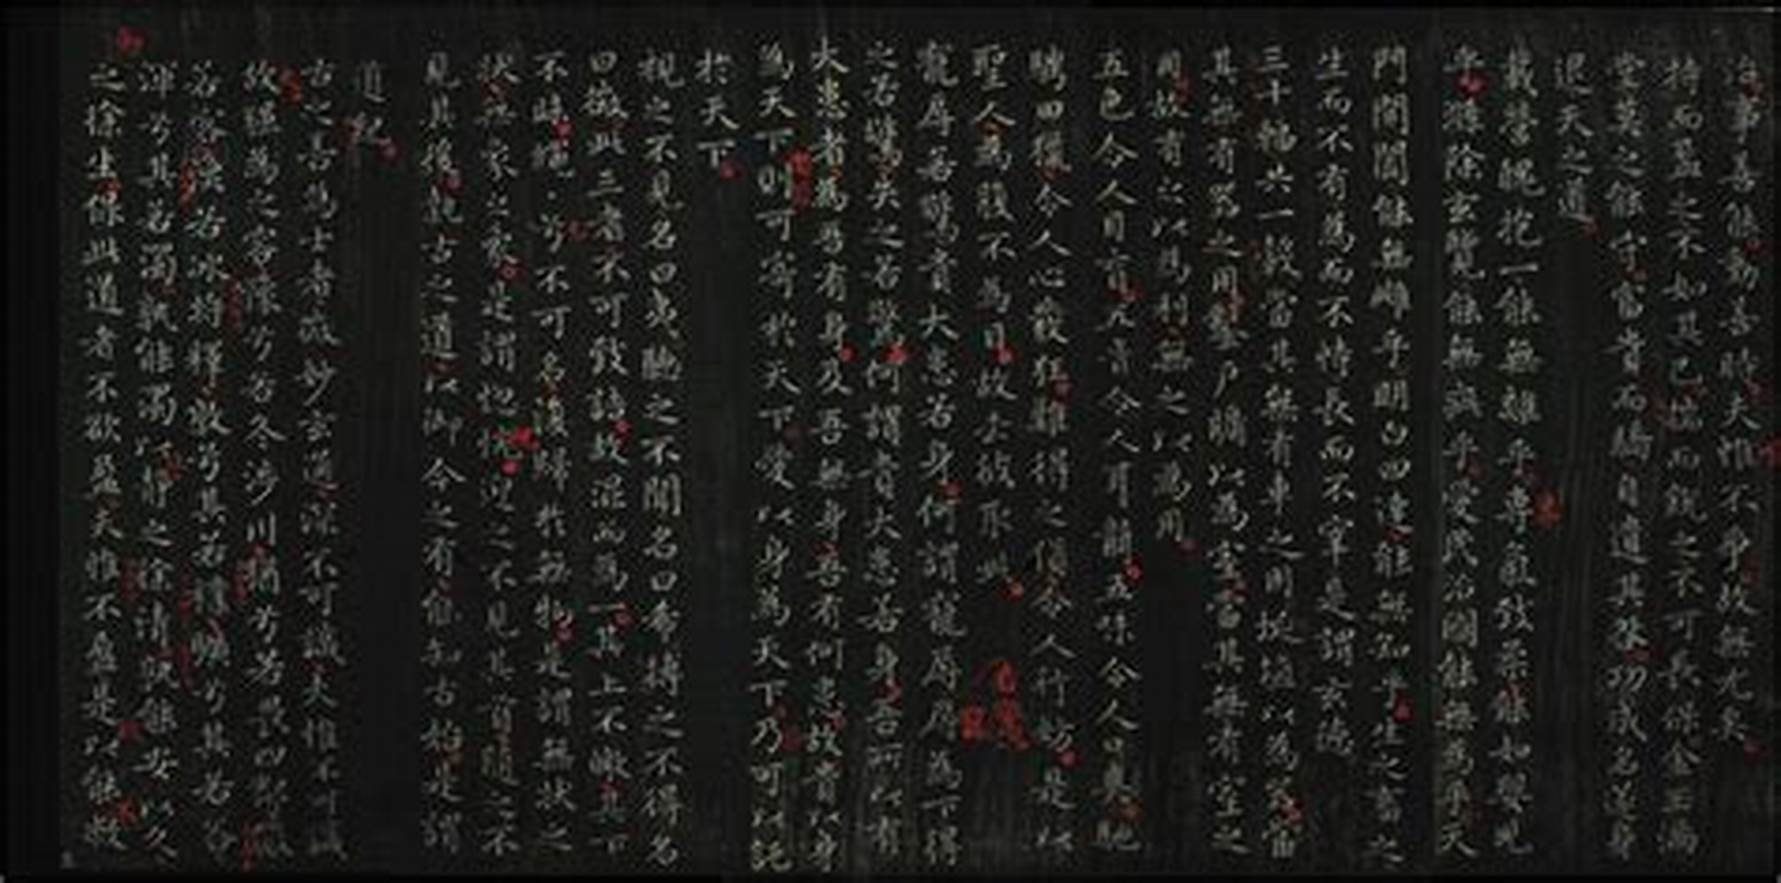 治事善能動善時夫惟不爭故無尤矣
持而盈之不如其已揣而銳之不可長保金玉滿
堂莫之能守富貴而驕自遺其咎功成名遂身
退天之道
載營魄抱一能無離乎專氣致柔能如嬰兒
乎滌除玄覽能無疵乎愛民治國能無為乎天
門開闔能無雌乎明白四達能無知乎生之畜之
生而不有為而不恃長而不宰是謂玄德
三十輻共一轂當其無有車之用埏埴以為器當
其無有器之用鑿戶牖以為室當其無有室之
用故有之以為利無之以為用
五色令人目盲五音令人耳聾五味令人口爽馳
騁田獵令人心發狂難得之貨令人行妨是以
聖人為腹不為目故去彼取此
寵辱若驚貴大患若身何謂寵辱辱為下得
之若驚失之若驚何謂貴大患若身吾所以有
大患者為吾有身及吾無身吾有何患故貴以身
為天下則可寄於天下愛以身為天下乃可以託
於天下
視之不見名曰夷聽之不聞名曰希摶之不得名
曰微此三者不可致詰故混而為一其上不皦其下
不昧繩繩兮不可名復歸於無物是謂無狀之
狀無象之象是謂惚恍迎之不見其首隨之不
見其後執古之道以御今之有能知古始是謂
道紀
古之善為士者微妙玄通深不可識夫惟不可識
故強為之容豫兮若冬涉川猶兮若畏四鄰儼
若客渙若冰將釋敦兮其若樸曠兮其若谷
渾兮其若濁孰能濁以靜之徐清孰能安以久
之徐生保此道者不欲盈夫惟不盈是以能敝